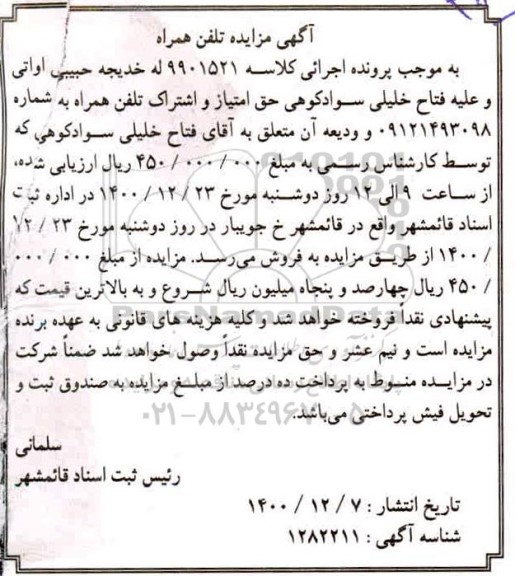 آگهی مزایده تلفن همراه
به موجب پرونده اجرائی کلاسه ۹۹۰۱۵۲۱ له خدیجه حبیبی اواتی
و علیه فتاح خلیلی سوادکوهی حق امتیاز و اشتراک تلفن همراه به شماره
۰۹۱۲۱۴۹۳۰۹۸ و ودیعه آن متعلق به آقای فتاح خلیلی سوادکوهی که
توسط کارشناس رسمی به مبلغ ۴۵۰/۰۰۰/۰۰۰ ریال ارزیابی شده،
از ساعت ۹ الی ۱۲ روز دوشنبه مورخ ۲۳ / ۱۲ / ۱۴۰۰ در اداره ثبت
اسناد قائمشهر واقع در قائمشهر خ جویبار در روز دوشنبه مورخ ۲۳ / ۱۲
/ ۱۴۰۰ از طریق مزایده به فروش می‌رسد. مزایده از مبلغ ۰۰۰ / ۰۰۰
/ ۴۵۰ ریال چهارصد و پنجاه میلیون ریال شروع و به بالاترین قیمت که
پیشنهادی نقداً فروخته خواهد شد و کلیه هزینه های قانونی به عهده برنده
مزایده است و نیم عشر و حق مزایده نقداً وصول خواهد شد ضمناً شرکت
در مزایده منوط به پرداخت ده درصد از مبلغ مزایده به صندوق ثبت و
تحویل فیش پرداختی می‌باشد.
سلمانی
رئیس ثبت اسناد قائمشهر
تاریخ انتشار : ۷ / ۱۲ / ۱۴۰۰
شناسه آگهی : ۱۲۸۲۲۱۱
ParsNamadData
۰۲۱-۸۸۳۴۹۶۷۰-۵